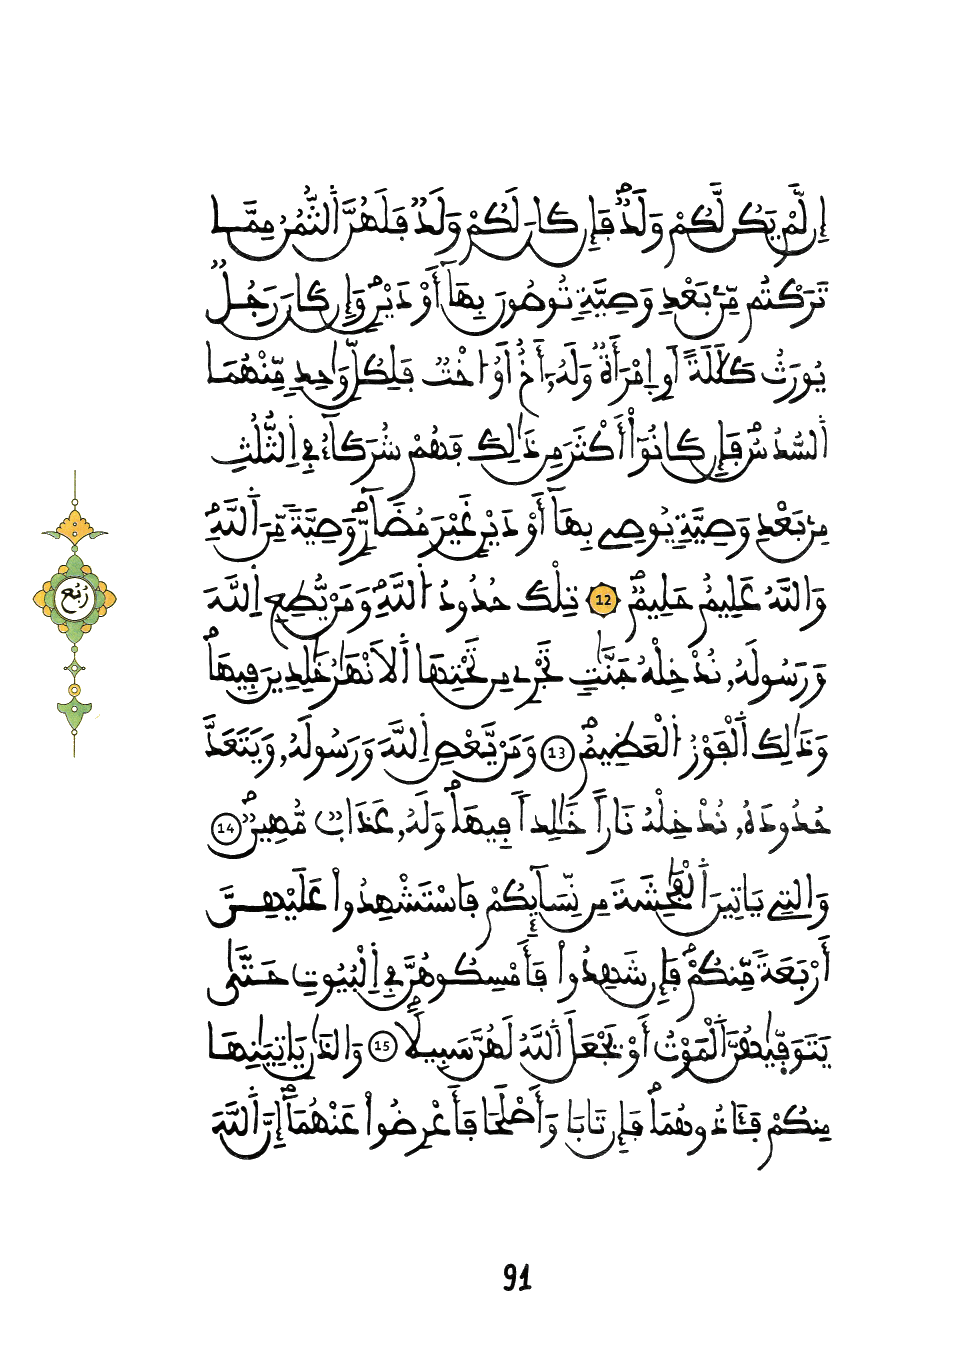 إِن لَّمْ يَكُن لَّكُمْ وَلَدٌ فَإِن كَانَ لَكُمْ وَلَدٌ فَلَهُنَّ اَ۬لثُّمُنُ مِمَّا
تَرَكْتُم مِّنۢ بَعْدِ وَصِيَّةٖ تُوصُونَ بِهَآ أَوْ دَيْنٖ وَإِن كَانَ رَجُلٞ
يُورَثُ كَلَٰلَةً أَوِ اِ۪مْرَأَةٞ وَلَهُۥٓ أَخٌ أَوُ ا۟خْتٞ فَلِكُلِّ وَٰحِدٖ مِّنْهُمَا
اَ۬لسُّدُسُ فَإِن كَانُوٓاْ أَكْثَرَ مِن ذَٰلِكَ فَهُمْ شُرَكَآءُ فِے اِ۬لثُّلُثِ
مِنۢ بَعْدِ وَصِيَّةٖ يُوصِے بِهَآ أَوْ دَيْنٍ غَيْرَ مُضَآرّٖ وَصِيَّةٗ مِّنَ اَ۬للَّهِ
وَاللَّهُ عَلِيمٌ حَلِيمٞ 12 تِلْكَ حُدُودُ اُ۬للَّهِ وَمَنْ يُّطِعِ اِ۬للَّهَ
وَرَسُولَهُۥ نُدْخِلْهُ جَنَّٰتٖ تَجْرِے مِن تَحْتِهَا اَ۬لَانْهَٰرُ خَٰلِدِينَ فِيهَا
وَذَٰلِكَ اَ۬لْفَوْزُ اُ۬لْعَظِيمُ 13 وَمَنْ يَّعْصِ اِ۬للَّهَ وَرَسُولَهُۥ وَيَتَعَدَّ
حُدُودَهُۥ نُدْخِلْهُ نَاراً خَٰلِداٗ فِيهَا وَلَهُۥ عَذَابٞ مُّهِينٞ 14
وَالتِے يَاتِينَ اَ۬لْفَٰحِشَةَ مِن نِّسَآئِكُمْ فَاسْتَشْهِدُواْ عَلَيْهِنَّ
أَرْبَعَةٗ مِّنكُمْ فَإِن شَهِدُواْ فَأَمْسِكُوهُنَّ فِے اِ۬لْبُيُوتِ حَتَّىٰ
يَتَوَفّ۪يٰهُنَّ اَ۬لْمَوْتُ أَوْ يَجْعَلَ اَ۬للَّهُ لَهُنَّ سَبِيلٗا 15 وَالذَٰنِ يَاتِيَٰنِهَا
مِنكُمْ فَـَٔاذُوهُمَا فَإِن تَابَا وَأَصْلَحَا فَأَعْرِضُواْ عَنْهُمَآ إِنَّ اَ۬للَّهَ
رُبُع
91